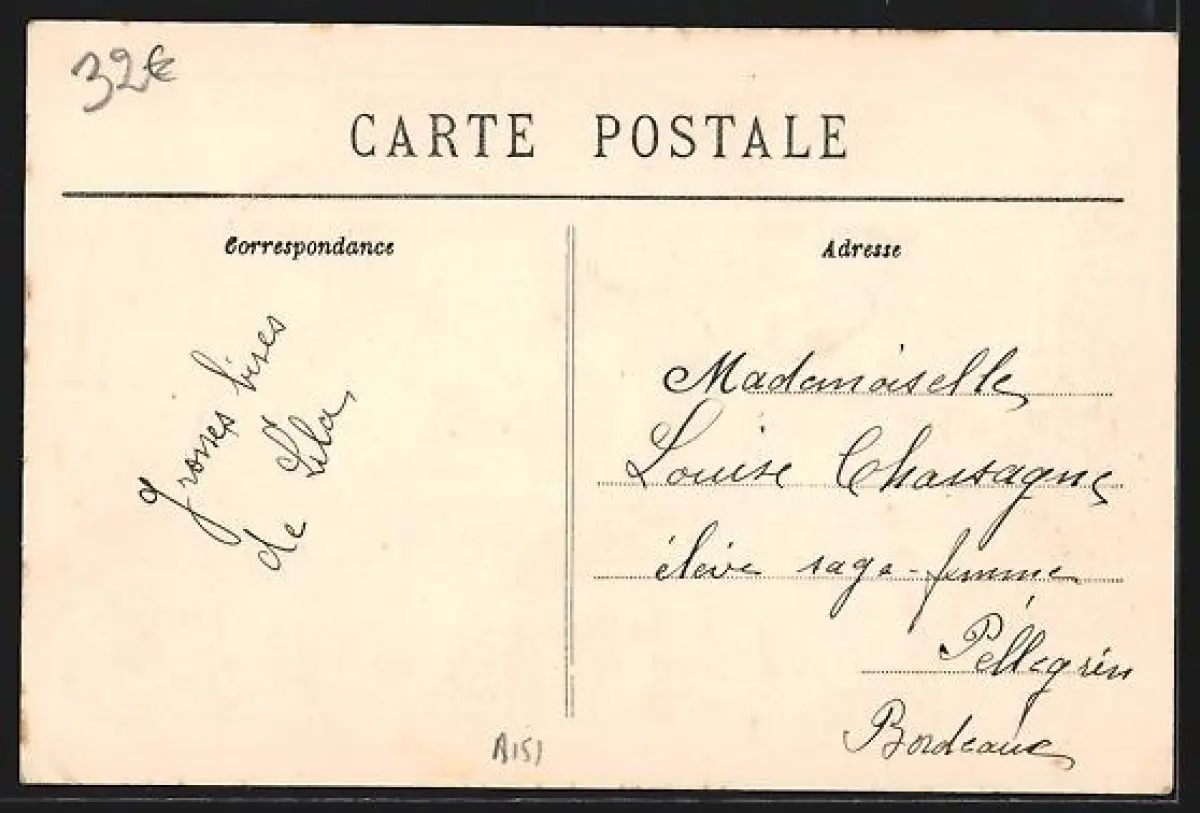 32€
CARTE POSTALE
Correspondance
Grosses bises
de
Adresse
Mademoiselle
Louise Chassagne
élève sage-femme
Péllegrin
Bordeaux